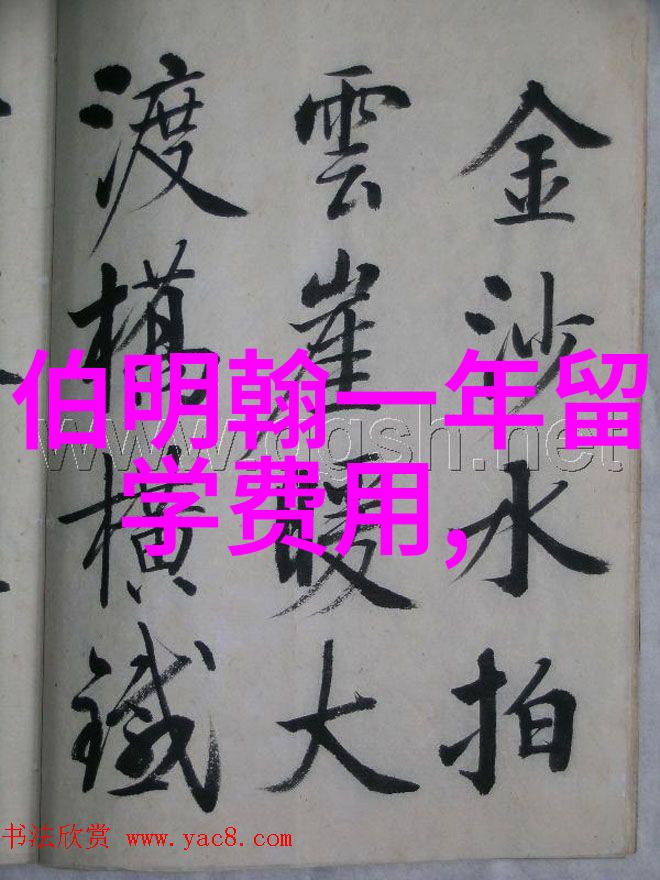 金沙水拍
雲崖暖大
渡橋橫鐵
伯明翰一年留
学费用,
书法欣赏 www.yac8.com